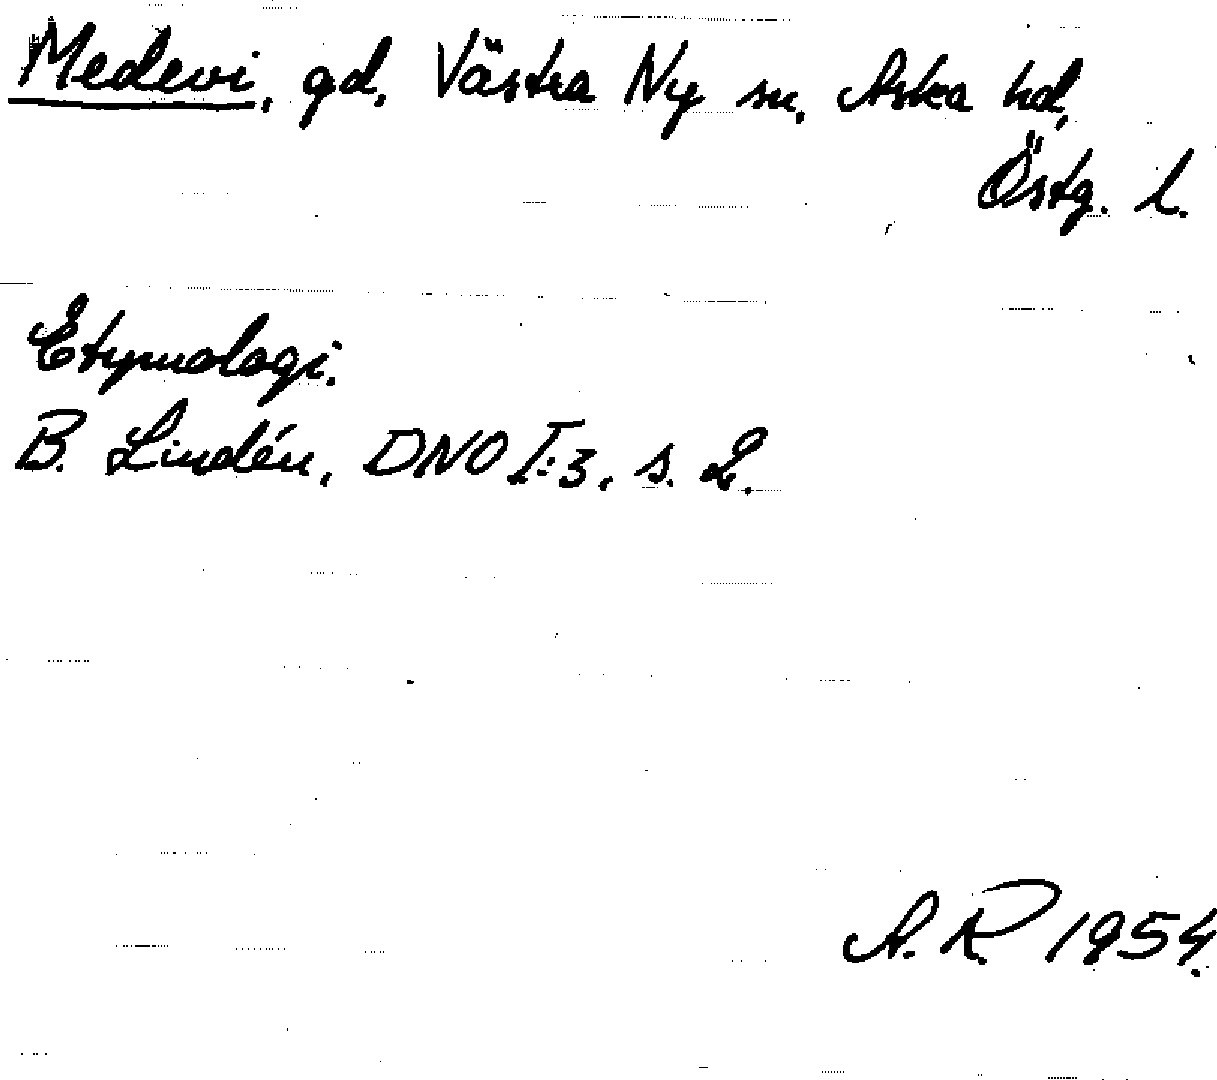 Medevi, gd, Västra Ny sn, Aska hd,
Östg. l.
Etymologi.
B. Lindén, DNO I:3, s. 2.
A. R 1954.